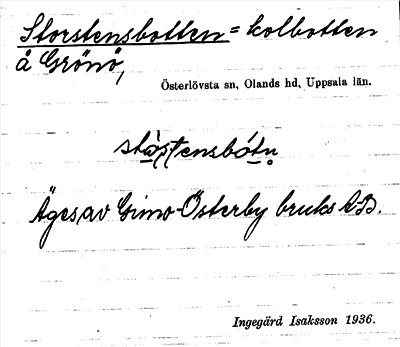 Storstensbotten = kolbotten
å Grönö,
Österlövsta sn, Olands hd, Uppsala län.
Äges av Gimo-Österby bruks A.B.
Ingegärd Isaksson 1936.